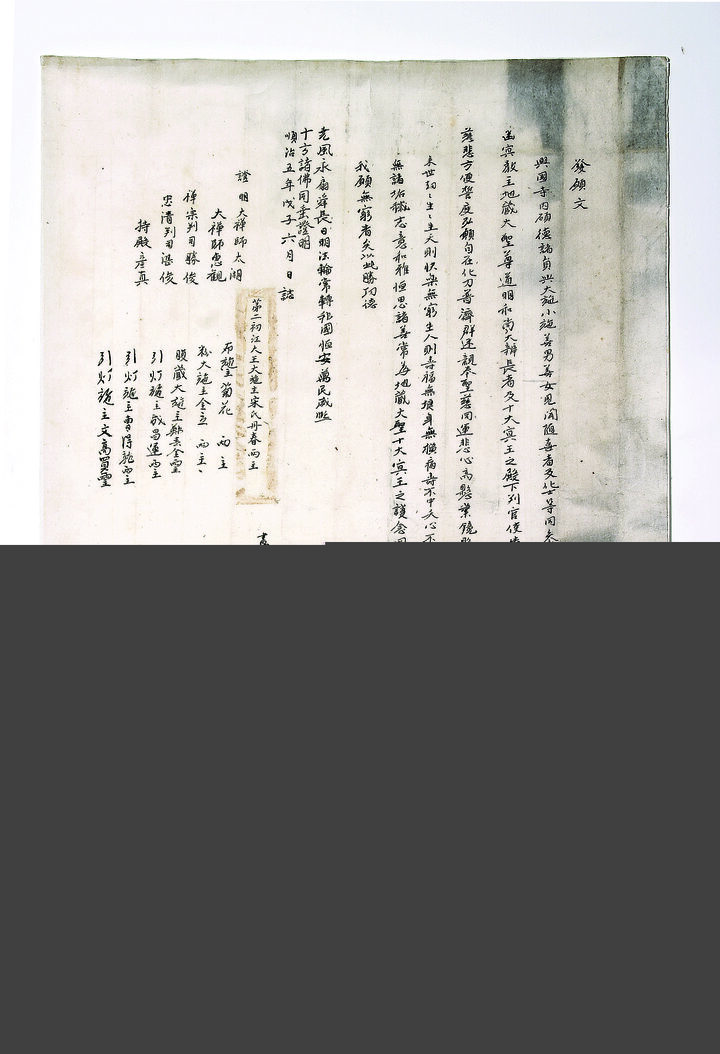 發願文
興國寺內碩德諸貞與大施小施善男善女見聞隨喜者及化士等同
幽冥教主地藏大聖尊道明和尚大辨長者及十大冥王之殿下列官
慈悲方便誓度弘願句在化刀普濟群迷親奉聖慈同運悲心高懸業鏡
未世詡々生々生天則快樂無窮生人則壽福無損身無橫病壽不中夭心不
無諸垢穢志意和雅恒思諸善常為地藏大聖十大冥王之護念
我願無窮者矣以此勝功德
堯風永扇舜長日明法輪常轉於國恒安萬民咸
十方諸佛同垂證明
順治五年戊子六月日誌
證明大禪師太湖
大禪師惠觀
禪宗判司勝俊
忠清判司梁俊
持殿彦真
第二初江大王大施主宋氏丹春兩主
施主菊花兩主
大施主金立兩主
腹藏大施主金
引灯施主成昌運兩主
引灯施主曹得龍兩主
引灯施主文高買